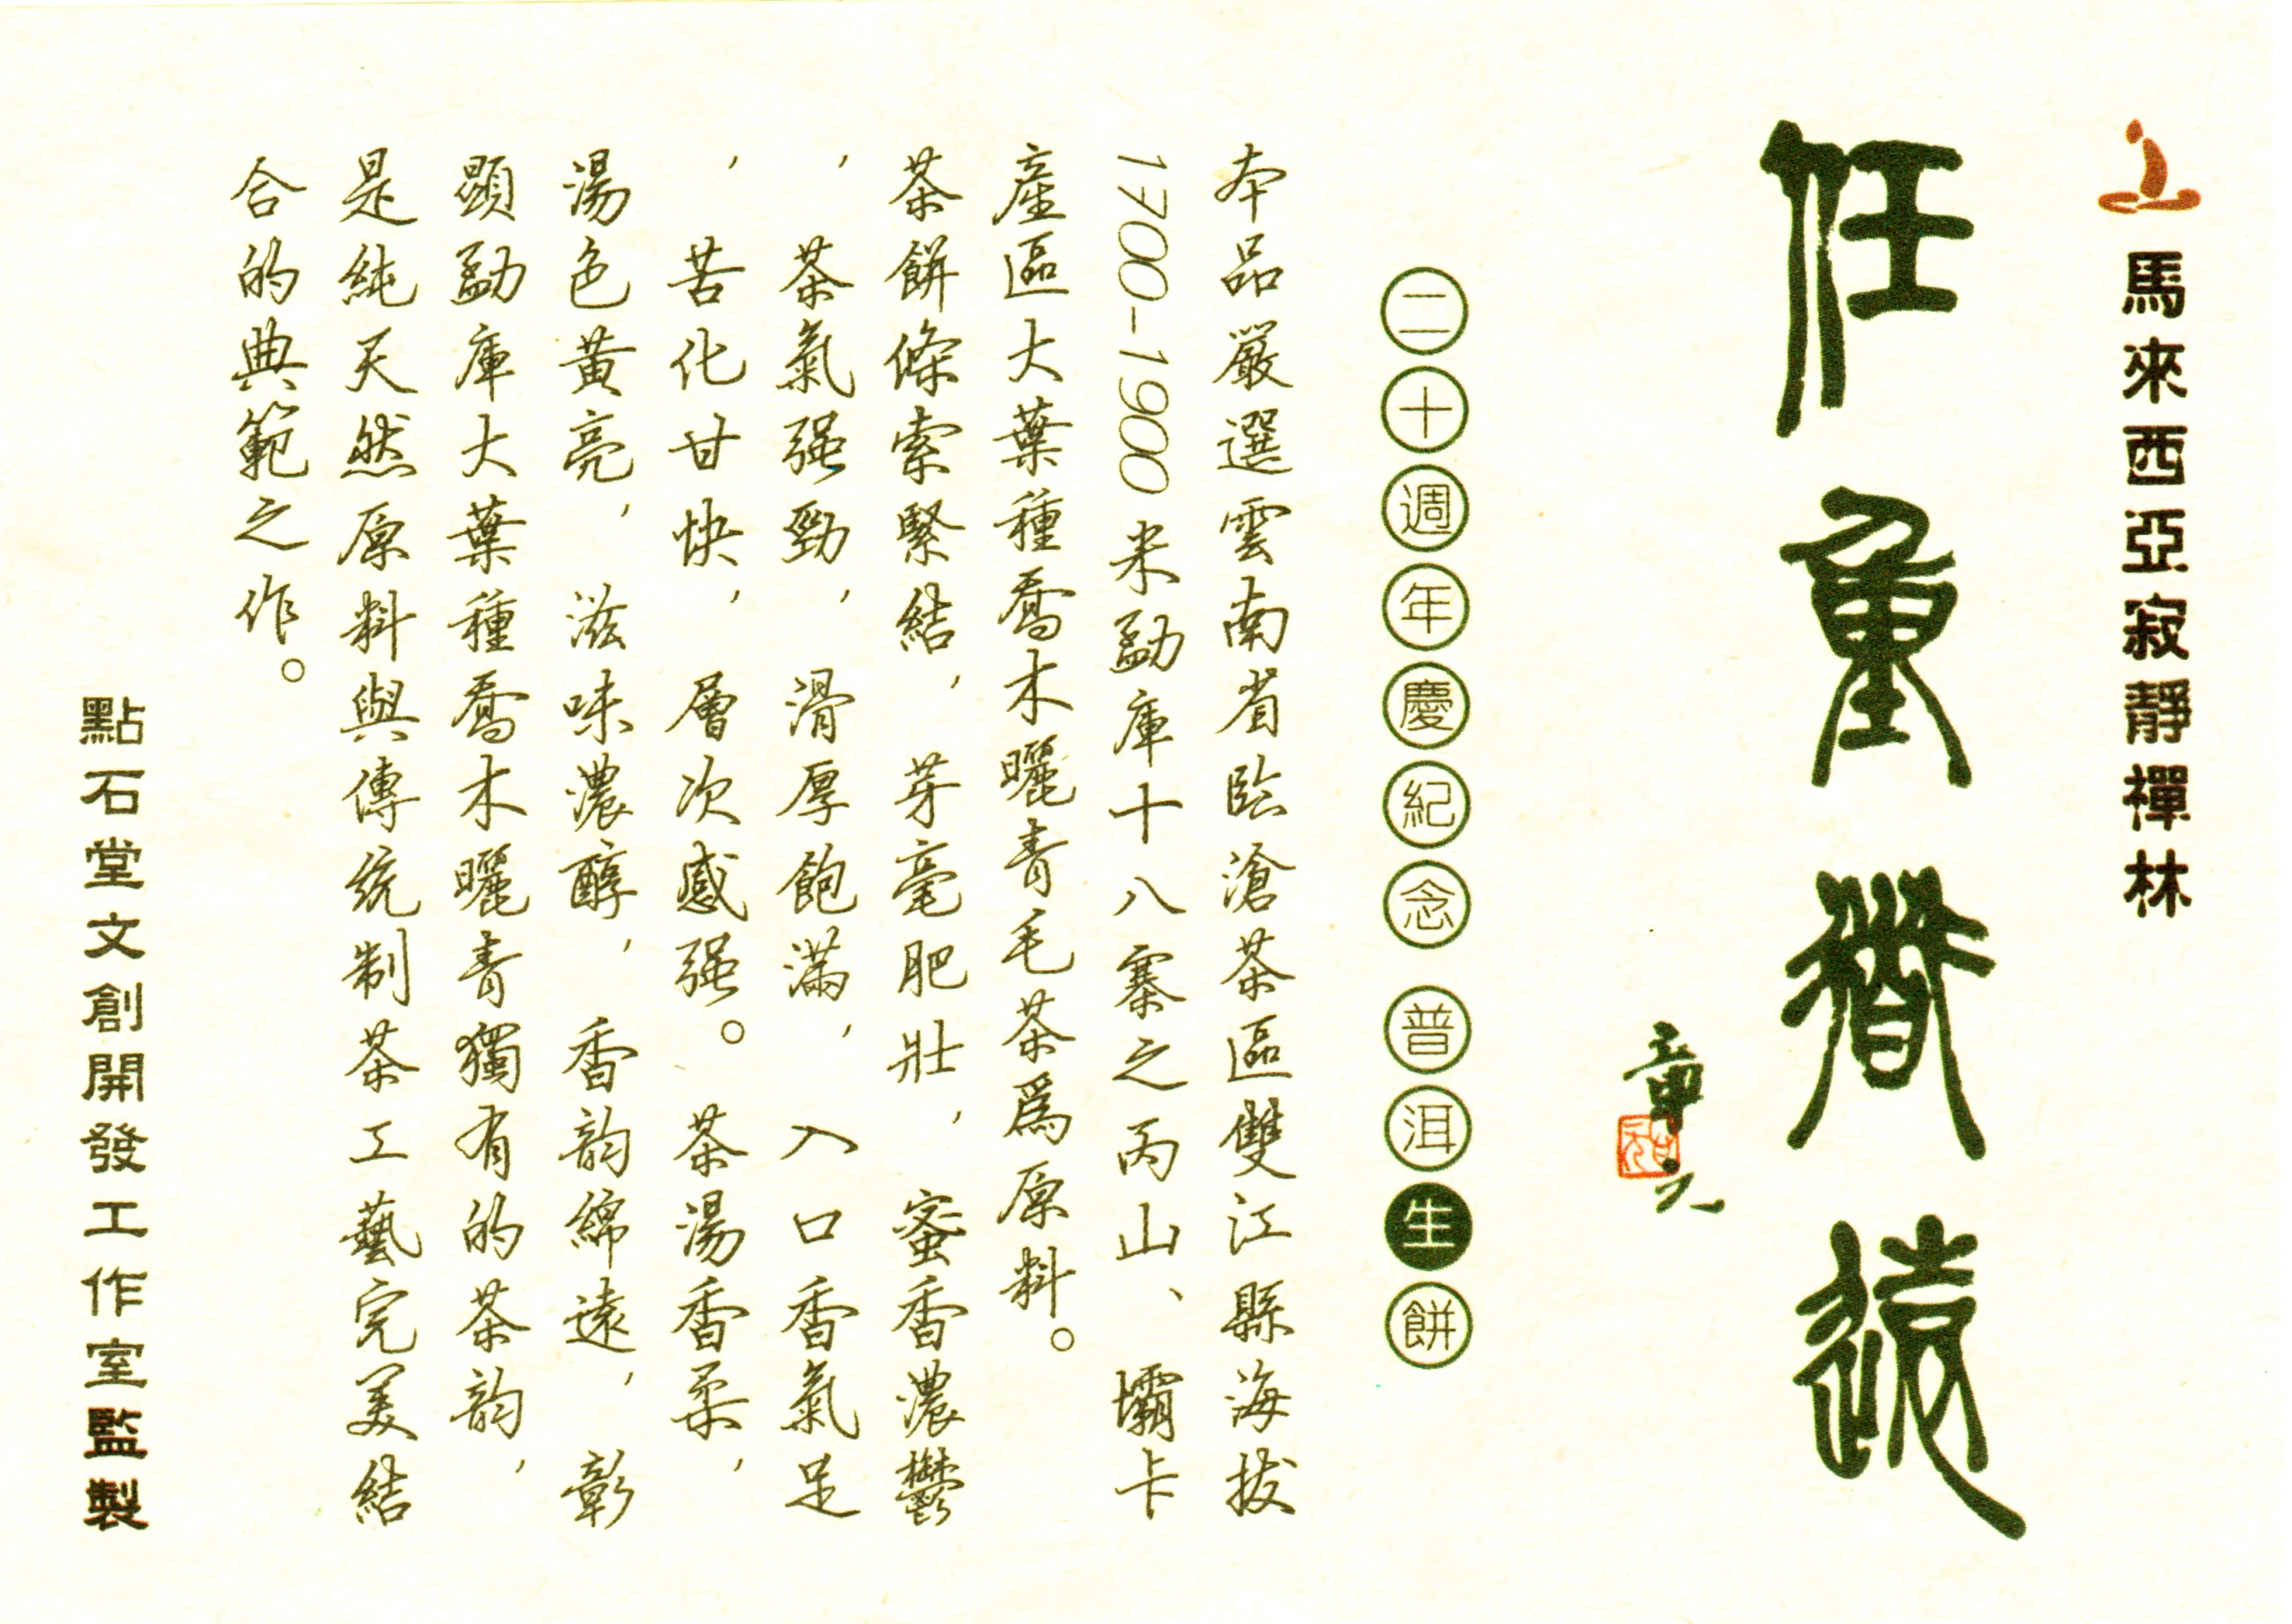 馬來西亞寂靜禪林
任重道遠
二十週年慶紀念 普洱生餅
本品嚴選雲南省臨滄茶區雙江縣海拔
1700-1900米勐庫十八寨之丙山、壩卡
產區大葉種喬木曬青毛茶為原料。
茶餅條索緊結,芽毫肥壯,蜜香濃鬱
,茶氣强勁,滑厚飽滿,入口香氣足
,苦化甘快,層次感强。茶湯香柔,
湯色黃亮,滋味濃醇,香韵綿遠,彰
顯勐庫大葉種喬木曬青獨有的茶韵,
是純天然原料與傳統制茶工藝完美結
合的典範之作。
點石堂文創開發工作室監製